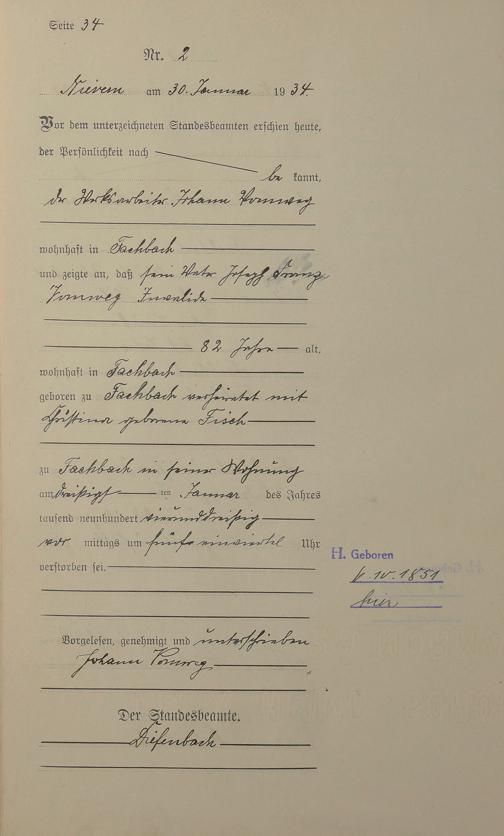 Seite 34
Nr. 2
Nievern am 30. Januar 1934.
Vor dem unterzeichneten Standesbeamten erschien heute,
der Persönlichkeit nach
be kannt,
der Werksarbeiter Johann Vomweg
wohnhaft in Fachbach
und zeigte an, daß sein Vater Joseph Franz
Vomweg Invalide
82 Jahre alt,
wohnhaft in Fachbach
geboren zu Fachbach verheiratet mit
Christina geborene Fisch
zu Fachbach in seiner Wohnung
am dreißigsten Januar des Jahres
tausend neunhundert vierunddreißig
vor mittags um fünf einviertel Uhr
verstorben sei.
H. Geboren
6.10.1851
hier
Vorgelesen, genehmigt und unterschrieben
Johann Vomweg
Der Standesbeamte.
Diefenbach